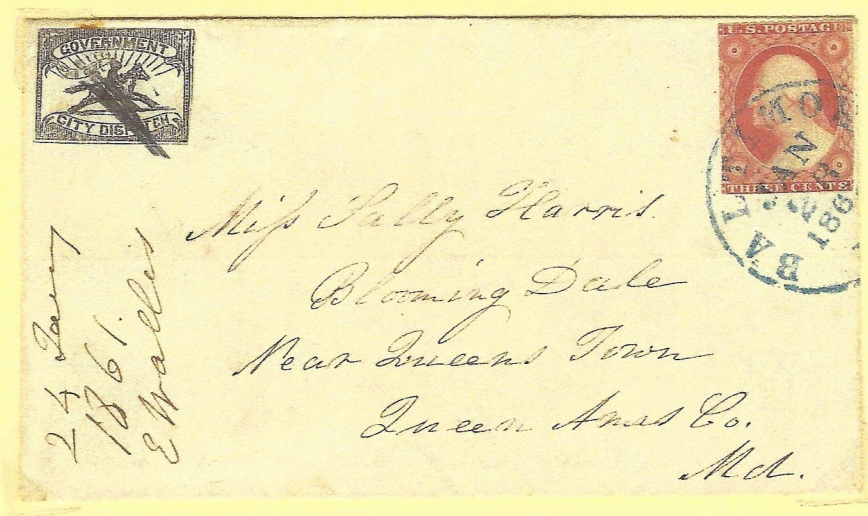 GOVERNMENT
CITY DISPATCH
U.S. POSTAGE
THREE CENTS
BALTIMO
JAN
186
Miss Sally Harris.
Blooming Dale
Near Queens Town
Queen Anns Co.
Md.
24 Jany
1861.
E Wallis